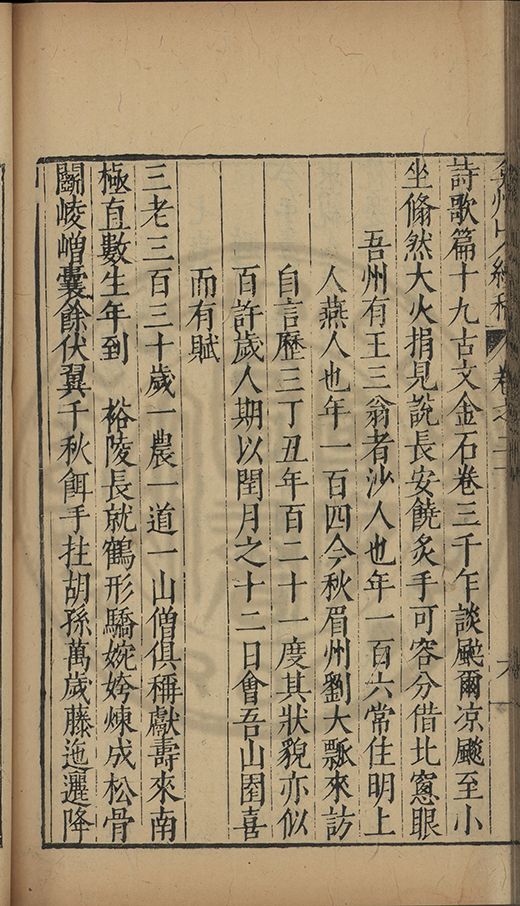 弇州山人續稿 卷之二十 六
詩歌篇十九古文金石卷三千乍談颸爾凉颷至小
坐翛然大火捐見說長安饒炙手可容分借北窻眠
吾州有王三翁者沙人也年一百六常住明上
人燕人也年一百四今秋眉州劉大瓢來訪
自言歷三丁丑年百二十一度其狀貌亦似
百許歲人期以閏月之十二日會吾山園喜
而有賦
三老三百三十歲一農一道一山僧俱稱獻壽來南
極直數生年到 裕陵長就鶴形驕婉姱煉成松骨
鬬崚嶒囊餘伏翼千秋餌手拄胡孫萬歲藤迤邐降